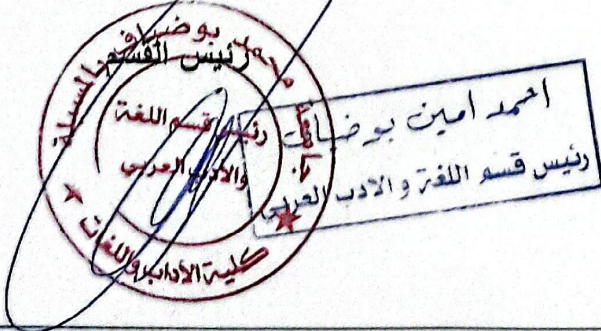 رئيس القسم
جامعة محمد بوضياف المسيلة
رئيس قسم اللغة
والأدب العربي
كلية الآداب واللغات
احمد امين بوضياف
رئيس قسم اللغة و الادب العربي